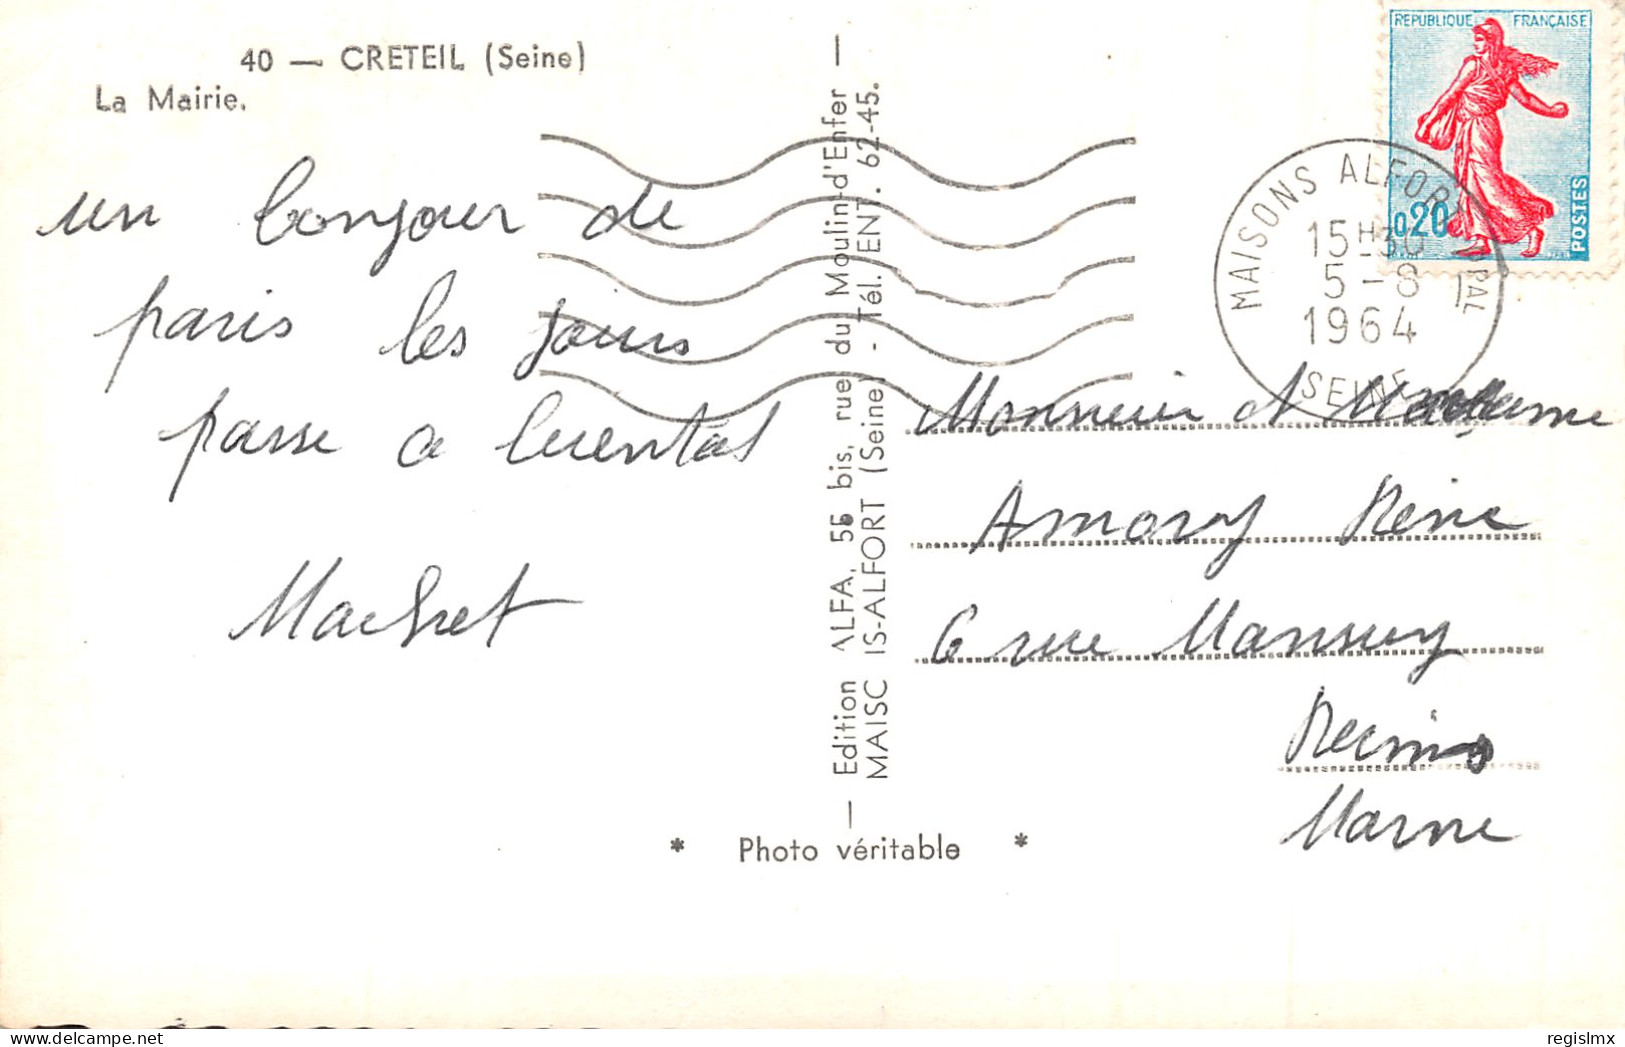 40 — CRETEIL (Seine)
La Mairie.
un bonjour de
paris les jours
passe a
Machet
— Edition ALFA, 55 bis, rue du Moulin-d'Enfer —
MAISC IS-ALFORT (Seine) - Tél. ENT. 62-45.
* Photo véritable *
REPUBLIQUE FRANÇAISE
0,20
POSTES
MAISONS ALFORT PPAL
15H30
5-8
1964
SEINE
Monsieur et Madame
Amory Réné
6 rue Mansuy
Reims
Marne
regislmx